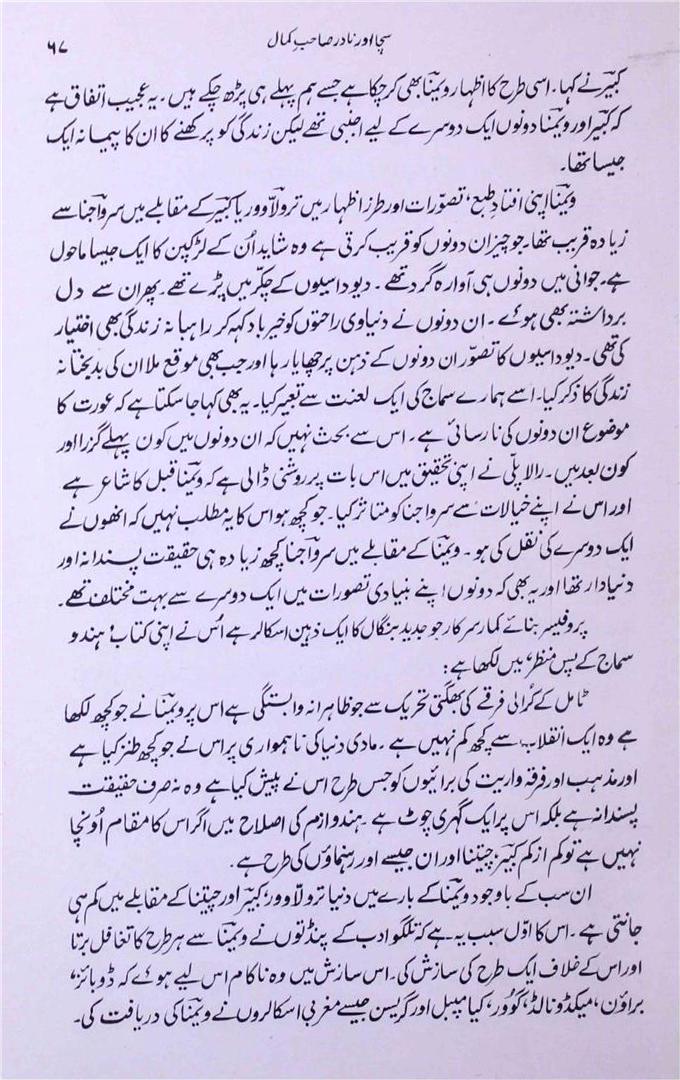 سچا اور نادر صاحبِ کمال
۶۷
کبیؔر نے کہا۔ اسی طرح کا اظہار ویمنؔا بھی کر چکا ہے جسے ہم پہلے ہی پڑھ چکے ہیں۔ یہ عجیب اتفاق ہے
کہ کبیؔر اور ویمنؔا دونوں ایک دوسرے کے لیے اجنبی تھے لیکن زندگی کو پرکھنے کا ان کا پیمانہ ایک
جیسا تھا۔
ویمنؔا اپنی افتادِ طبع، تصوّرات اور طرزِ اظہار میں ترولّاوور یا کبیؔر کے مقابلے میں سرواؔجنا سے
زیادہ قریب تھا۔ جو چیز ان دونوں کو قریب کرتی ہے وہ شاید اُن کے لڑکپن کا ایک جیسا ماحول
ہے۔ جوانی میں دونوں ہی آوارہ گرد تھے۔ دیوداسیوں کے چکّر میں پڑے تھے۔ پھر ان سے دل
برداشتہ بھی ہوئے۔ ان دونوں نے دنیاوی راحتوں کو خیر باد کہہ کر راہبانہ زندگی بھی اختیار
کی تھی۔ دیوداسیوں کا تصوّر ان دونوں کے ذہن پر چھایا رہا اور جب بھی موقع ملا ان کی بدبختانہ
زندگی کا ذکر کیا۔ اسے ہمارے سماج کی ایک لعنت سے تعبیر کیا۔ یہ بھی کہا جا سکتا ہے کہ عورت کا
موضوع ان دونوں کی نارسائی ہے۔ اس سے بحث نہیں کہ ان دونوں میں کون پہلے گزرا اور
کون بعد میں۔ رالاپلّی نے اپنی تحقیق میں اس بات پر روشنی ڈالی ہے کہ ویمنؔا قبل کا شاعر ہے
اور اس نے اپنے خیالات سے سرواجنا کو متاثر کیا۔ جو کچھ ہو اس کا یہ مطلب نہیں کہ انھوں نے
ایک دوسرے کی نقل کی ہو۔ ویمنؔا کے مقابلے میں سرواؔجنا کچھ زیادہ ہی حقیقت پسندانہ اور
دنیادار تھا اور یہ بھی کہ دونوں اپنے بنیادی تصورات میں ایک دوسرے سے بہت مختلف تھے۔
پروفیسر بنائے کمار سرکار جو جدید بنگال کا ایک ذہین اسکالر ہے اُس نے اپنی کتاب ’ہندو
سماج کے پس منظر‘ میں لکھا ہے:
ٹامل کے کُرالی فرقے کی بھگتی تحریک سے جو ظاہرانہ وابستگی ہے اس پر ویمنؔا نے جو کچھ لکھا
ہے وہ ایک انقلاب سے کچھ کم نہیں ہے۔ مادی دنیا کی ناہمواری پر اس نے جو کچھ طنز کیا ہے
اور مذہب اور فرقہ واریت کی برائیوں کو جس طرح اس نے پیش کیا ہے وہ نہ صرف حقیقت
پسندانہ ہے بلکہ اس پر ایک گہری چوٹ ہے۔ ہندوازم کی اصلاح میں اگر اس کا مقام اُونچا
نہیں ہے تو کم از کم کبیؔر، چیتنیا اور ان جیسے اور رہنماؤں کی طرح ہے۔
ان سب کے باوجود ویمنؔا کے بارے میں دنیا ترولّاوور، کبیؔر اور چیتنیا کے مقابلے میں کم ہی
جانتی ہے۔ اس کا اوّل سبب یہ ہے کہ تلگو ادب کے پنڈتوں نے ویمنؔا سے ہر طرح کا تغافل برتا
اور اس کے خلاف ایک طرح کی سازش کی۔ اس سازش میں وہ ناکام اس لیے ہوئے کہ ڈوبائز،
براؤن، میکڈونالڈ، گوور، کیامپبل اور گریسن جیسے مغربی اسکالروں نے ویمنؔا کی دریافت کی۔